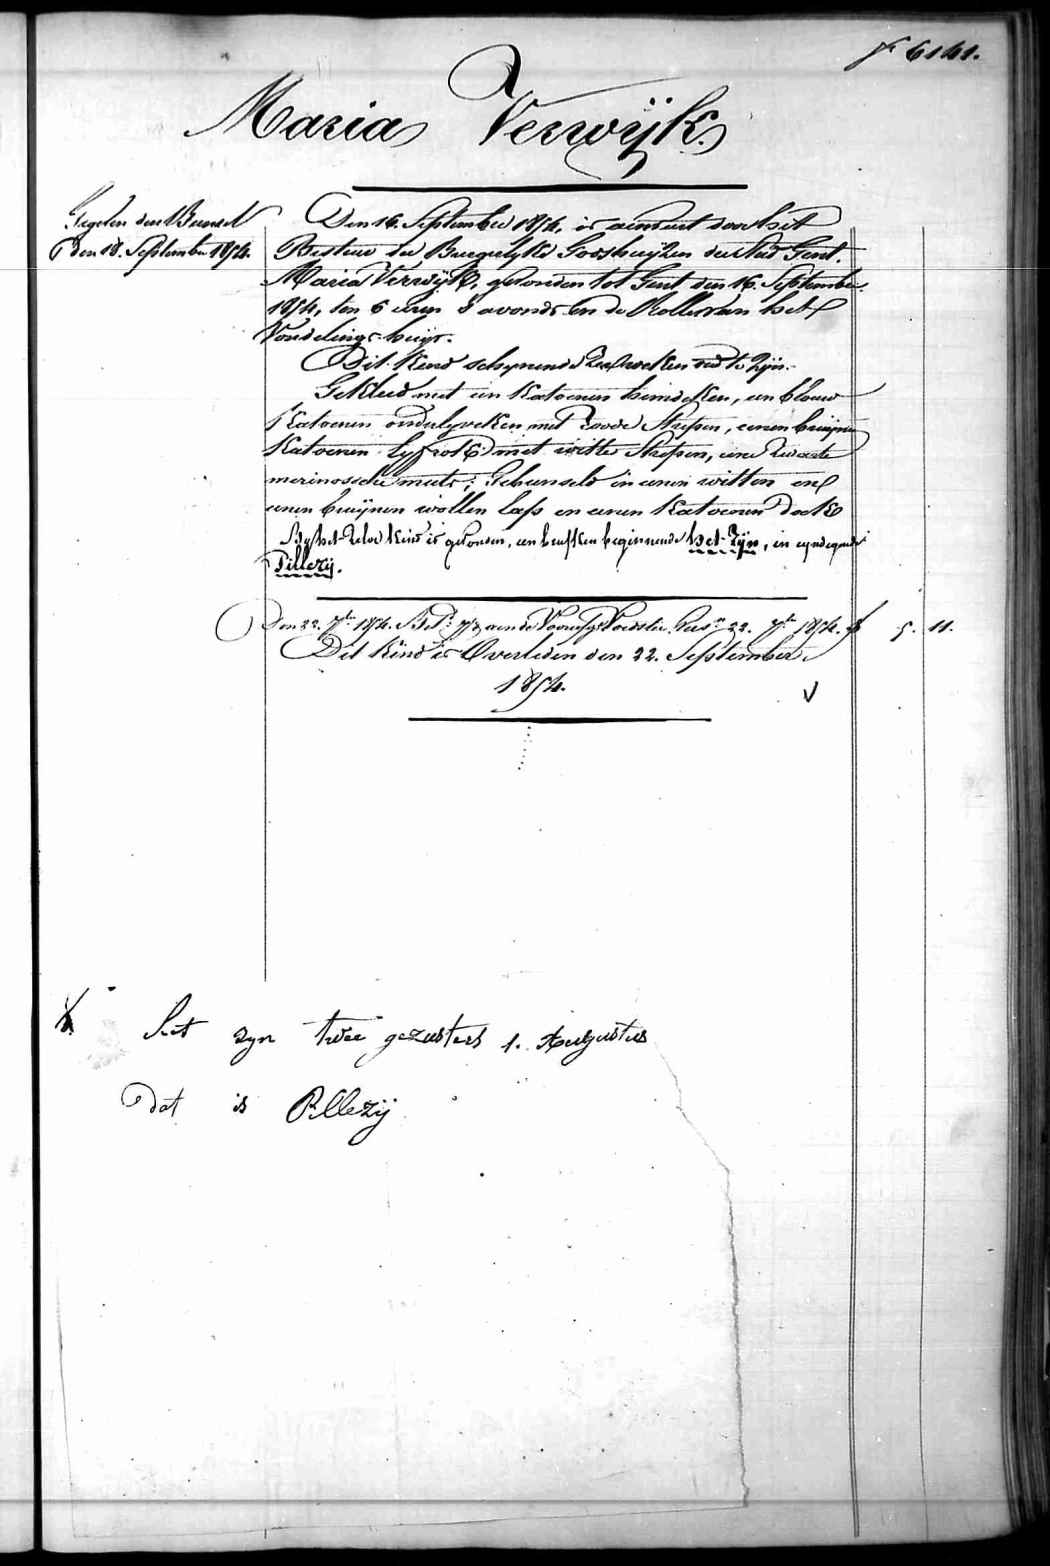 6141.
Maria Verwijk.
Den 18. September 1854.
Den 16. September 1854, is aenveert door het
Bestuer der Burgerlyke Godshuijzen der stad Gent.
Maria Verwijk, gevonden tot Gent den 16. September
1854, ten 6 uren 's avonds in de Rolle van het
Vondelings-huijs.
Dit Kend schynende zes weken oud te Zijn.
Gekleed met een Katoenen hemdeken, een blauw
Katoenen onderlyveken met Roode Strepen, eenen bruijnen
Katoenen lyfrok met witte Strepen, eene Zwarte
merinossche muts; Gebunseld in eenen witten en
eenen bruijnen wollen laps en eenen Katoenen doek
By het Zelve Kind is gevonden, een briefken beginnende het Zijn, en eyndigende
Pillezij.
Den 22. 7ber 1854. aen de Voedster 22. 7ber 1854. 5. 11.
Dit Kind is Overleden den 22. September
1854.
het zyn twee gezusters 1. Augustus
dat is Pillezij